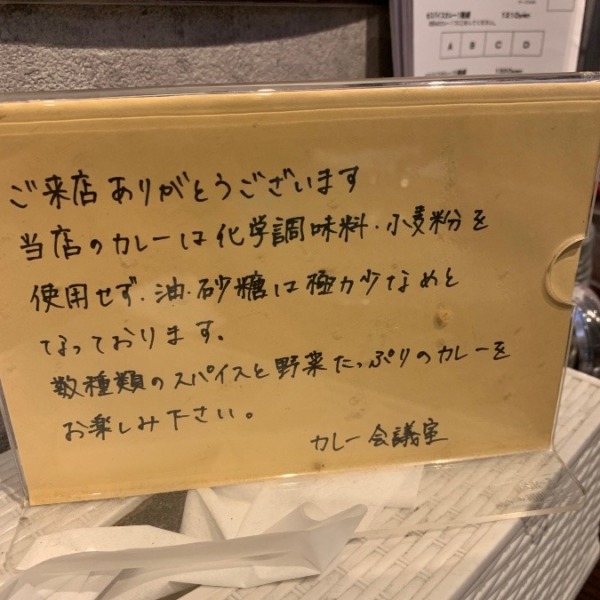 1210yen
A B C D
ご来店ありがとうございます
当店のカレーは化学調味料・小麦粉を
使用せず、油・砂糖は極力少なめと
なっております。
数種類のスパイスと野菜たっぷりのカレーを
お楽しみ下さい。
カレー会議室